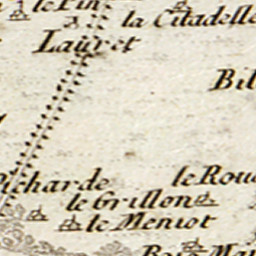 le Pin
la Citadelle
Lauret
Bil
Picharde
le Rou
le Grillon
le Meniot